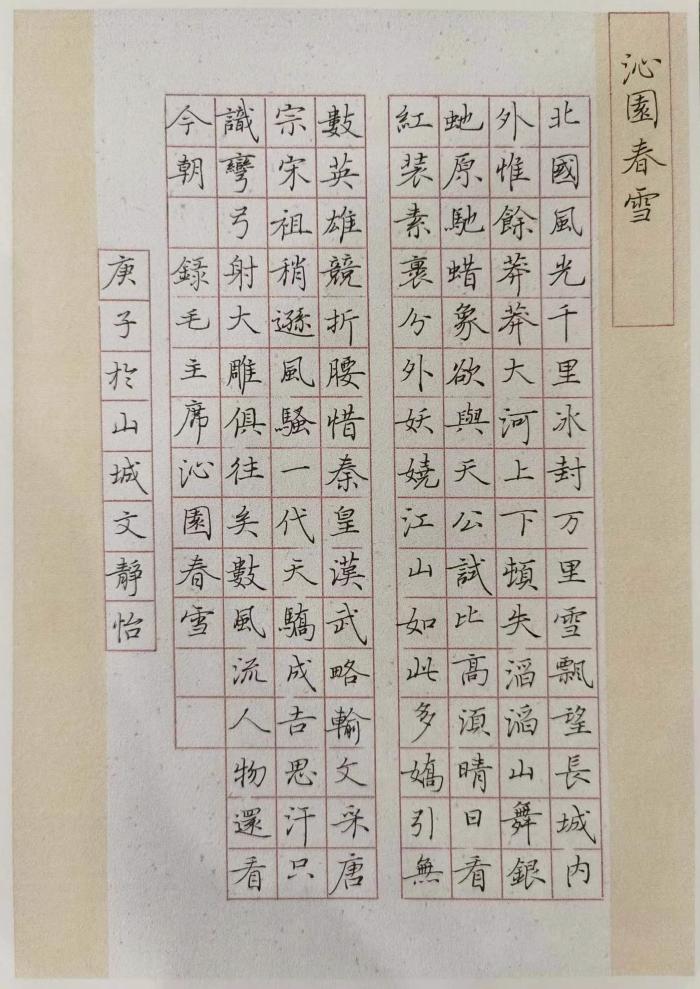 沁園春雪
北國風光千里冰封万里雪飄望長城内
外惟餘莽莽大河上下頓失滔滔山舞銀
虵原馳蜡象欲與天公試比高須晴日看
紅装素裹分外妖嬈江山如此多嬌引無
數英雄競折腰惜秦皇漢武略輸文采唐
宗宋祖稍遜風騷一代天驕成吉思汗只
識彎弓射大雕俱往矣數風流人物還看
今朝 錄毛主席沁園春雪
庚子於山城文靜怡